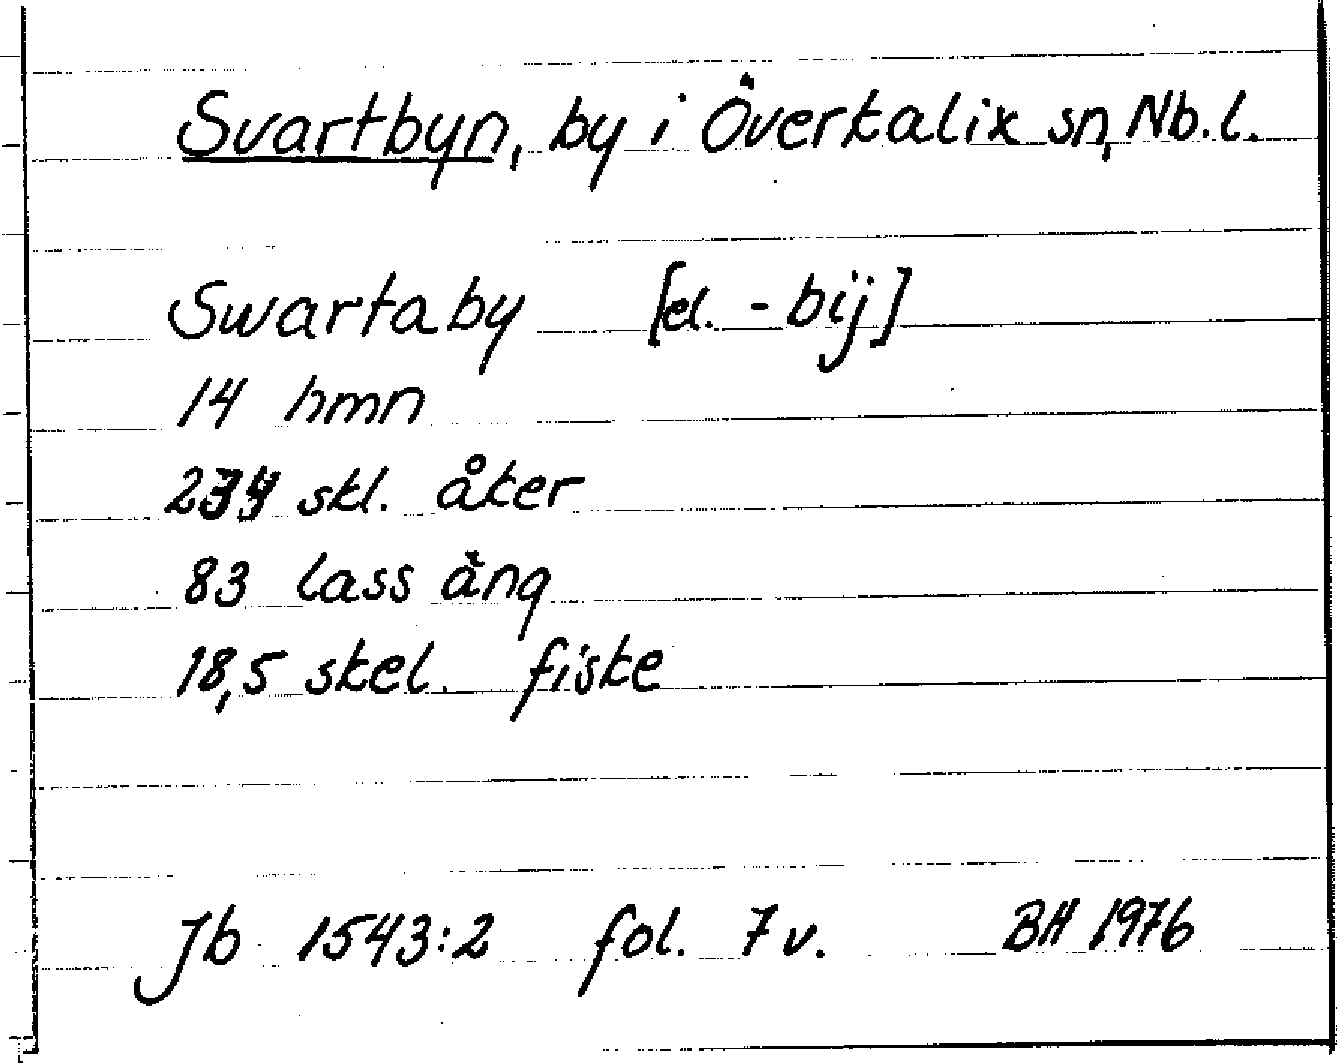 Svartbyn, by i Överkalix sn, Nb.l.
Swartaby [el. - bij]
14 hmn
skl. åker
83 lass äng
18,5 skel. fiske
Jb 1543:2 fol. 7 v. BH 1976